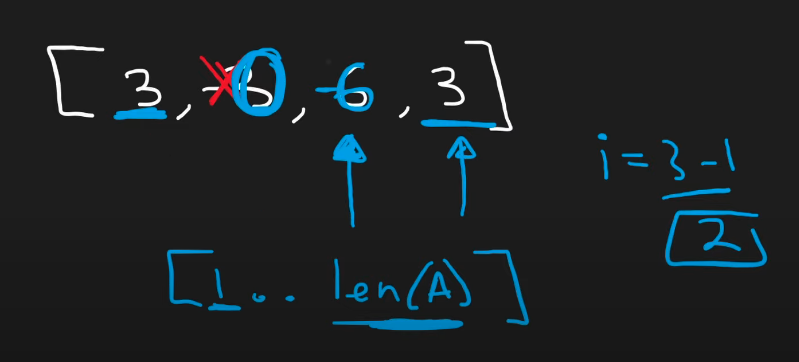 [ 3, 0, -6, 3 ]
i = 3 - 1
2
[ 1 .. len(A) ]